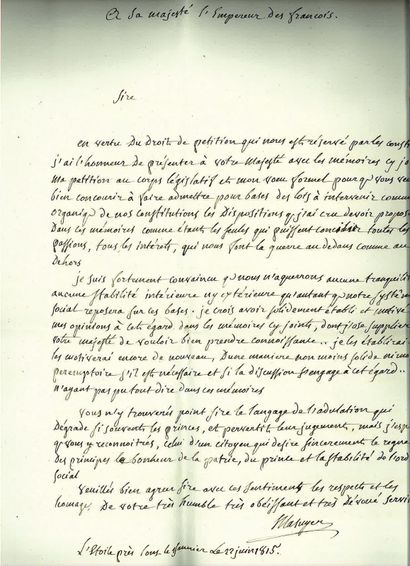 A Sa majesté l'Empereur des françois.
Sire
en vertu Du Droit de petition qui nous est réservé par les constit
j'ai l'honneur de présenter à votre Majesté avec les mémoires cy jo
Ma petition au corps législatif et mon voeu formel pour qu'vous veu
bien concourir à faire admettre pour bases des lois à intervenir comme
organiq de nos constitutions les Dispositions q j'ai cru devoir propose
Dans ces mémoires comme étant les seules qui puissent concilier toutes les
passions, tous les interets, qui nous font la guerre au dedans comme au
dehors
je suis fortement convaincu q nous n'aquerrons aucune tranquilit
aucune stabilité intérieure ny extérieure qu'autant q notre systèm
social reposera sur ces bases. je crois avoir solidement établi et motivé
mes opinions à cet égard dans les mémoires cy joints, dont j'ose supplier
votre majesté de vouloir bien prendre connoissance.. je les établirai
les motiverai encore de nouveau, D'une manière non moins solide ni moi
peremptoire s'il est nécessaire et si la discussion s'engage à cet égard..
n'ayant pas pu tout dire dans ces mémoires
vous n'y trouverés point sire le langage de l'adulation qui
Dégrade si souvent les princes, et pervertit leur jugement, mais j'espè
q vous y reconnoitrés, celui d'un citoyen qui desire sincerement le regne
Des principes le bonheur de la patrie, du prince et la stabilité de l'ord
social
veuillés bien agréer sire avec ces sentiments les respects et les
homages De votre très humble très obéissant et très dévoué servit
Masuyer
L'Etoile près Lons le Saunier Le 22 juin 1815.